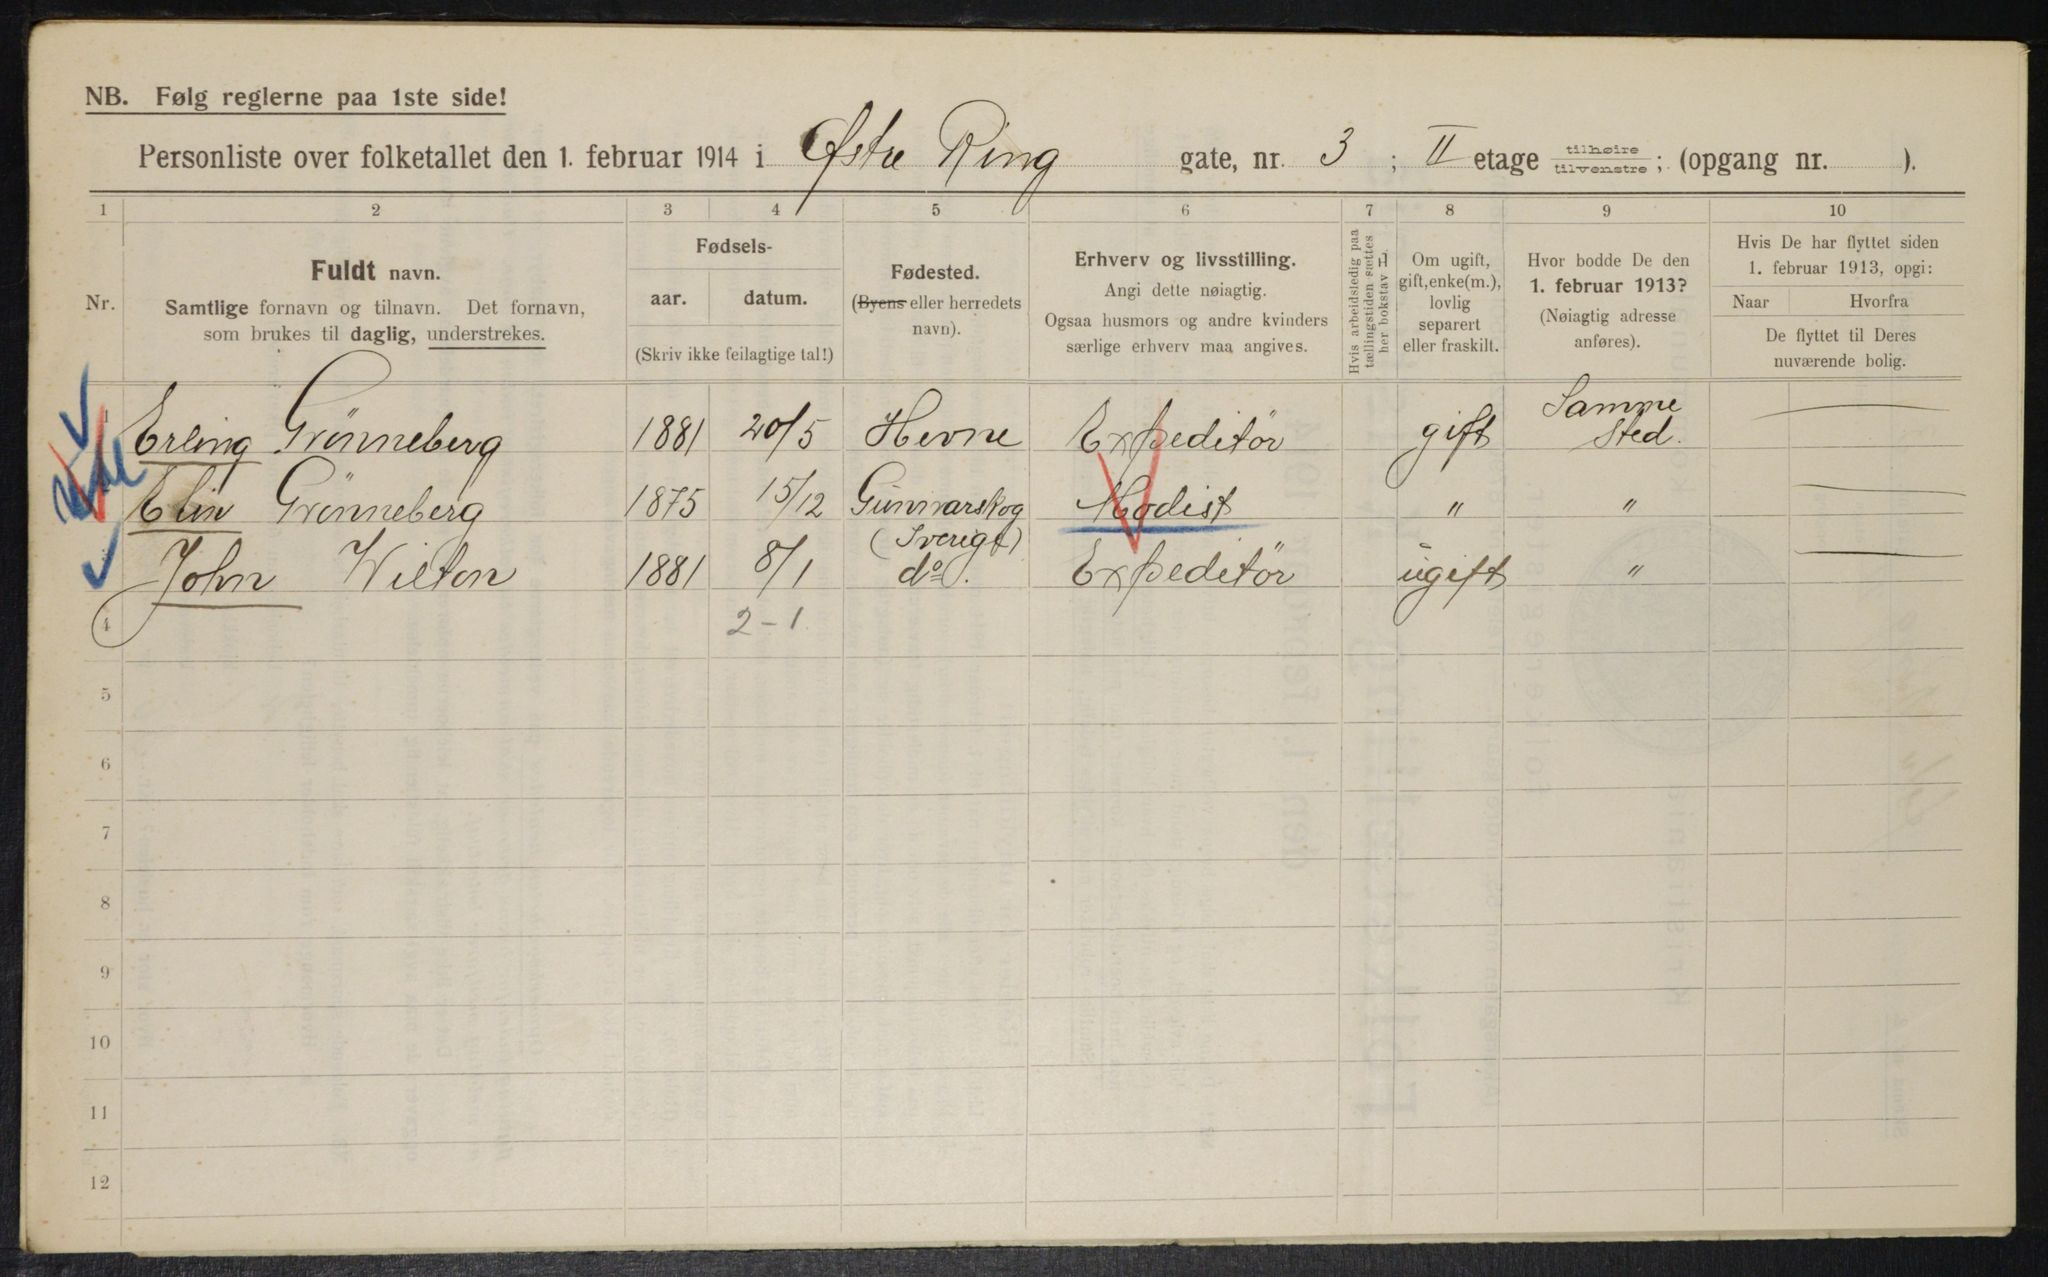 NB. Følg reglerne paa 1ste side!
Personliste over folketallet den 1. februar 1914 i Østre Ring gate, nr. 3 ; II etage tilhøire / tilvenstre ; (opgang nr. ).
1 2 3 4 5 6 7 8 9 10
Nr.
Fuldt navn.
Samtlige fornavn og tilnavn. Det fornavn,
som brukes til daglig, understrekes.
Fødsels-
aar. datum.
(Skriv ikke feilagtige tal!)
Fødested.
(Byens eller herredets
navn).
Erhverv og livsstilling.
Angi dette nøiagtig.
Ogsaa husmors og andre kvinders
særlige erhverv maa angives.
Hvis arbeidsledig paa
tællingstiden sættes
her bokstav L.
Om ugift,
gift, enke(m.),
lovlig
separert
eller fraskilt.
Hvor bodde De den
1. februar 1913?
(Nøiagtig adresse
anføres).
Hvis De har flyttet siden
1. februar 1913, opgi:
Naar Hvorfra
De flyttet til Deres
nuværende bolig.
1 Erling Grönneberg 1881 20/5 Hevne Expeditör gift Samme Sted.
Elin Grönneberg 1875 15/12 Gunnarskog (Sverige) Modist " "
John Wilton 1881 8/1 do. Expeditör ugift "
4 2-1.
5
6
7
8
9
10
11
12